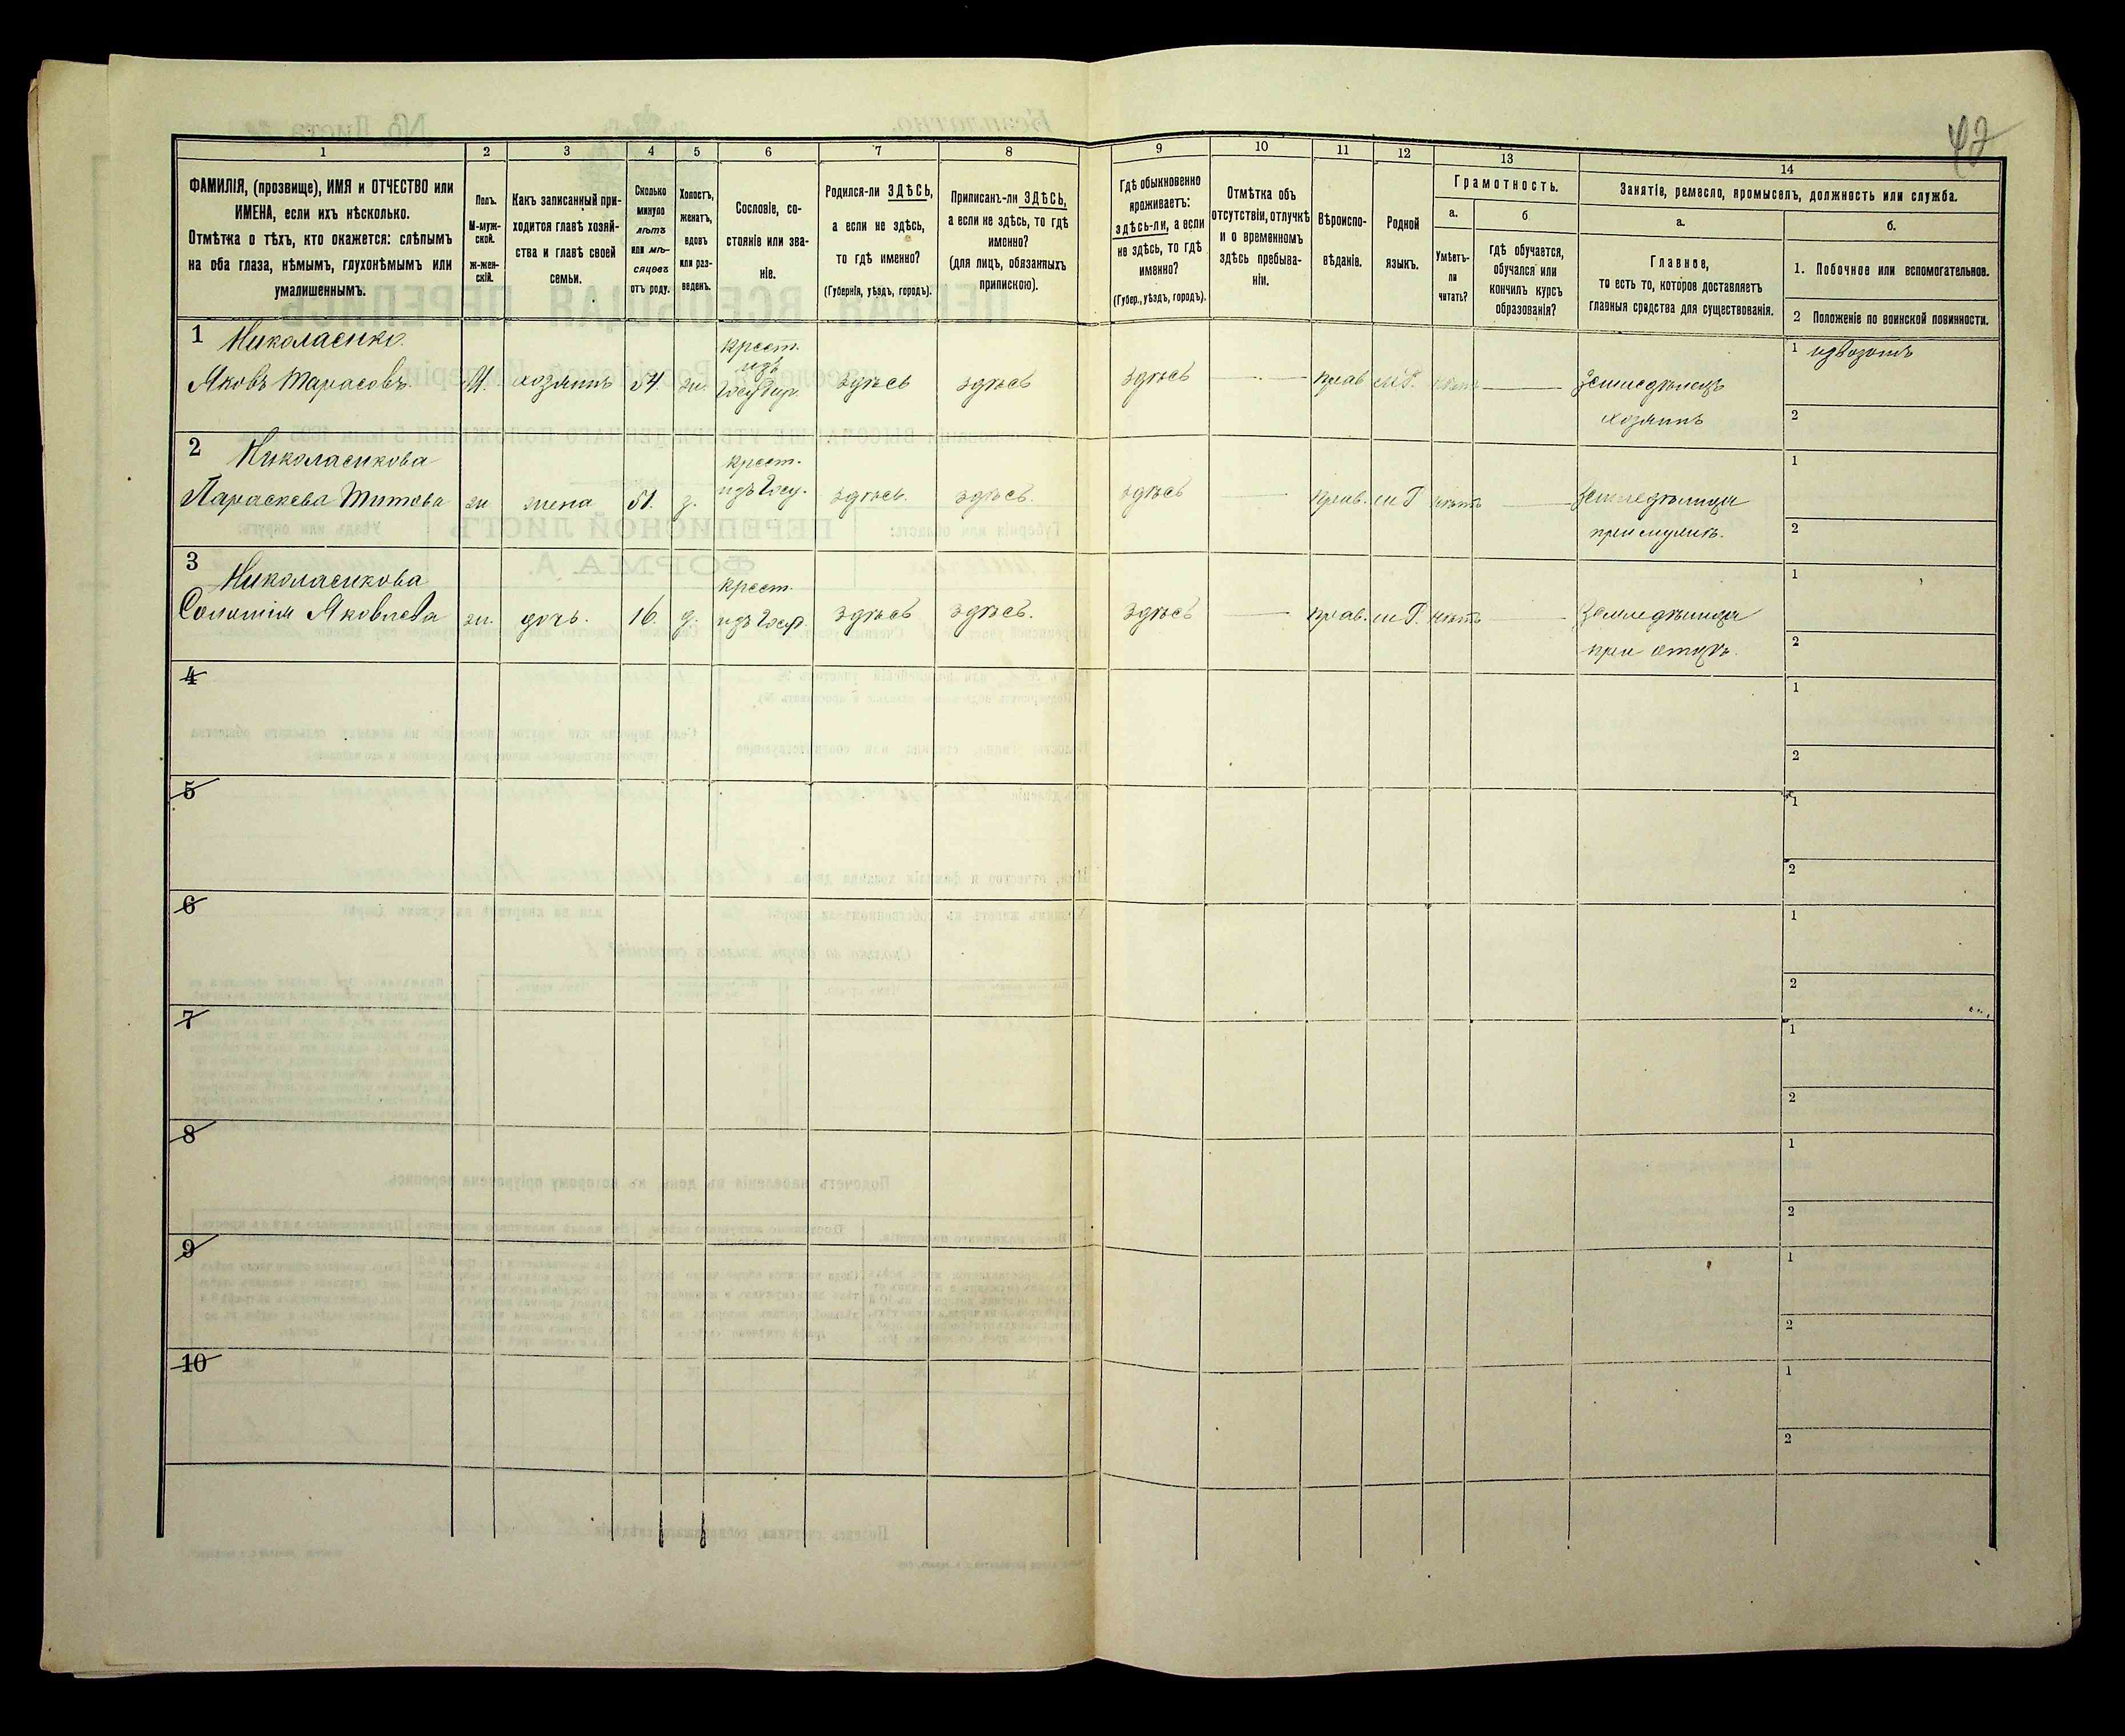 42
1 2 3 4 5 6 7 8 9 10 11 12 13 14
ФАМИЛІЯ, (прозвище), ИМЯ и ОТЧЕСТВО или
ИМЕНА, если ихъ нѣсколько.
Отмѣтка о тѣхъ, кто окажется: слѣпымъ
на оба глаза, нѣмымъ, глухонѣмымъ или
умалишеннымъ.
Полъ.
М-муж-
ской.
Ж-жен-
скій.
Какъ записанный при-
ходится главѣ хозяй-
ства и главѣ своей
семьи.
Сколько
минуло
лѣтъ
или мѣ-
сяцевъ
отъ роду.
Холостъ,
женатъ,
вдовъ
или раз-
веденъ.
Сословіе, со-
стояніе или зва-
ніе.
Родился-ли ЗДѢСЬ,
а если не здѣсь,
то гдѣ именно?
(Губернія, уѣздъ, городъ).
Приписанъ-ли ЗДѢСЬ,
а если не здѣсь, то гдѣ
именно?
(для лицъ, обязанныхъ
припискою).
Гдѣ обыкновенно
проживаетъ:
здѣсь-ли, а если
не здѣсь, то гдѣ
именно?
(Губер., уѣздъ, городъ).
Отмѣтка объ
отсутствіи, отлучкѣ
и о временномъ
здѣсь пребыва-
ніи.
Вѣроиспо-
вѣданіе.
Родной
языкъ.
Грамотность.
а.
Умѣетъ-
ли
читать?
б
гдѣ обучается,
обучался или
кончилъ курсъ
образованія?
Занятіе, ремесло, промыселъ, должность или служба.
а.
Главное,
то есть то, которое доставляетъ
главныя средства для существованія.
б.
1. Побочное или вспомогательное.
2 Положеніе по воинской повинности.
1 Николаенко
крест.
изъ
1 извозомъ
Яковъ Тарасовъ. М. хозяинъ 54. ж. Государ. здѣсь здѣсь здѣсь — прав м.Р. нѣтъ — Земледѣлецъ
хозяинъ
2
2 Николаенкова
крест.
1
Параскева Титова ж жена 51. з. изъ Госу. здѣсь. здѣсь. здѣсь — прав. м Р нѣтъ — Земледѣлица
при мужѣ.
2
3 Николаенкова
крест.
1
Соломія Яковлева ж. дочь. 16. д. изъ Госуд. здѣсь здѣсь. здѣсь — прав. м Р. нѣтъ — Земледѣлица
при отцѣ.
2
4
1
2
5
1
2
6
1
2
7
1
2
8
1
2
9
1
2
10
1
2